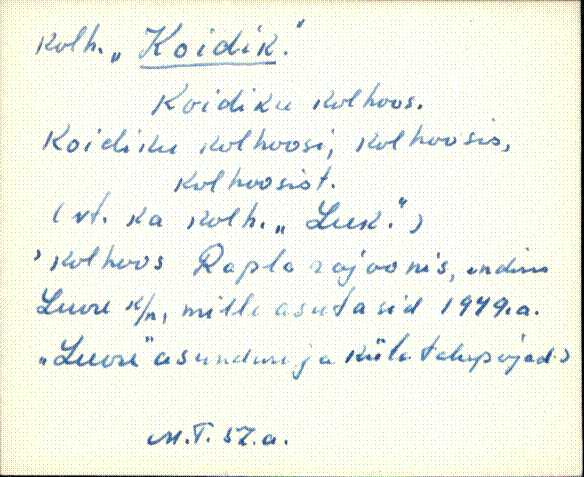 kolh. „Koidik."
Koidiku kolhoos.
Koidiku kolhoosi, kolhoosis,
kolhoosist.
(vt. ka kolh. „Luk.")
› kolhoos Rapla rajoonis, endine
k/n, mille asutasid 1949.a.
asundus ja küla talupojad›
M.T. 52.a.